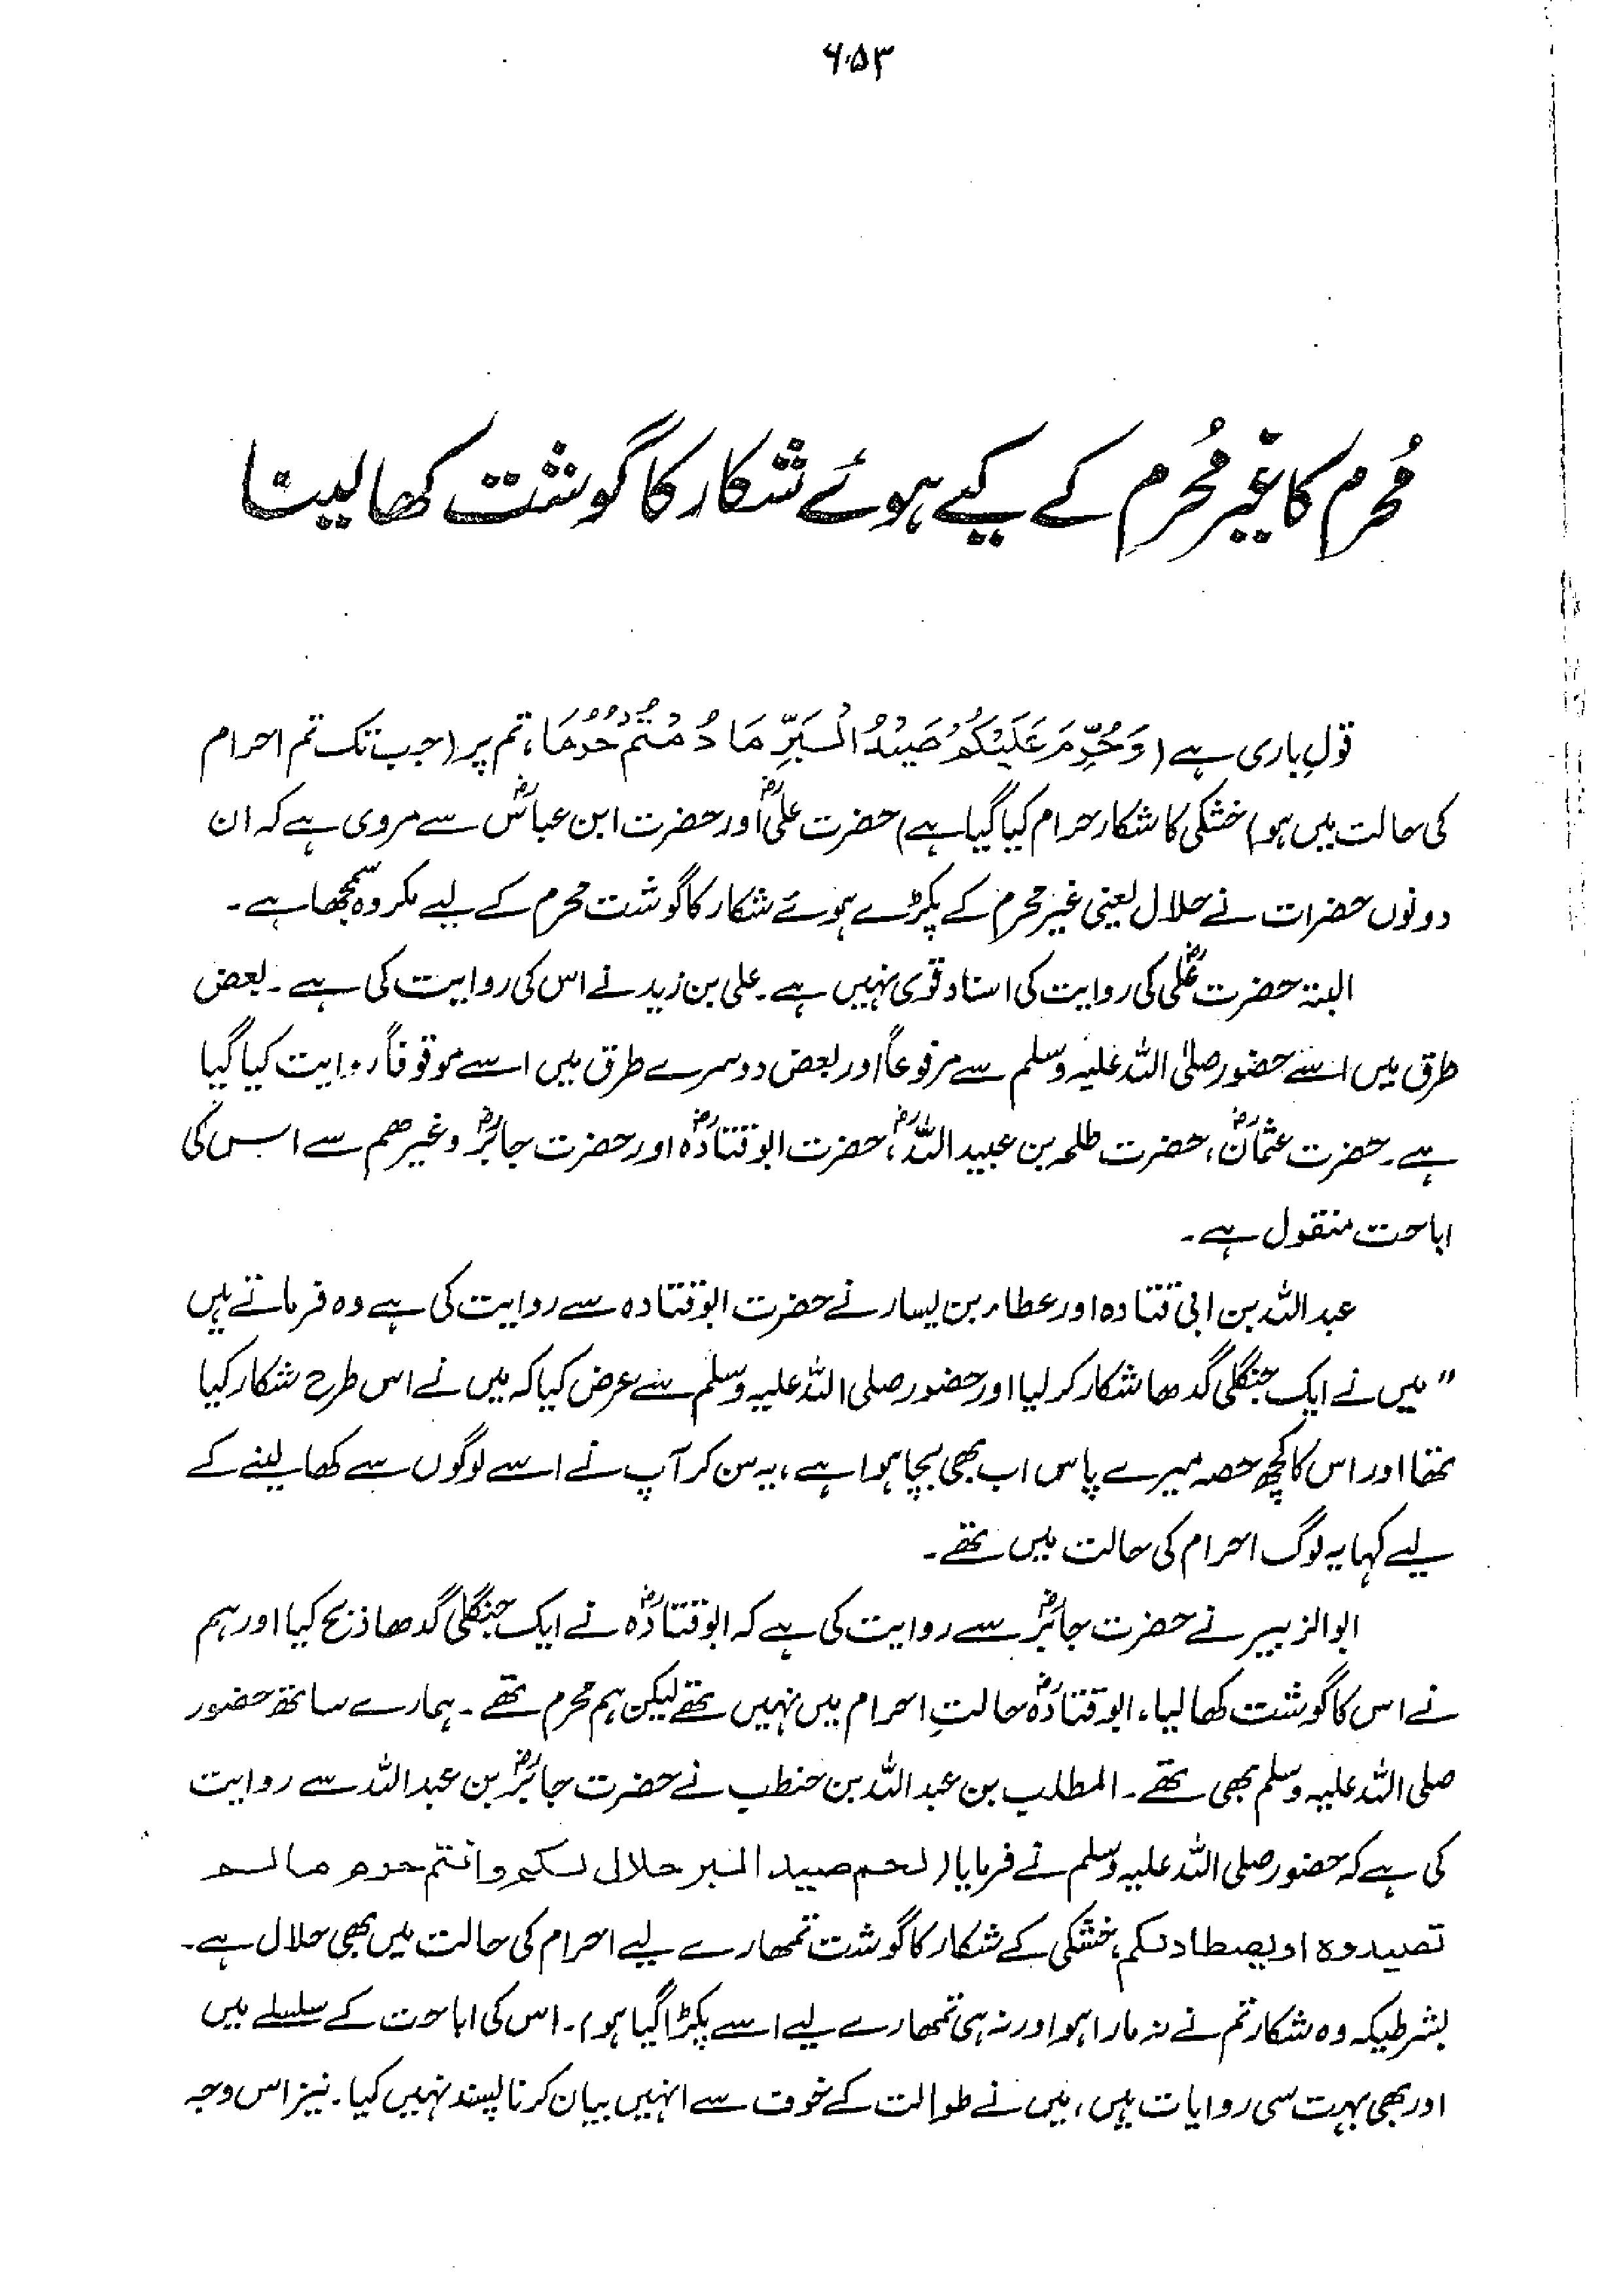 ۶۵۳
مُحرم کا غیر مُحرِم کے کیے ہوئے شکار کا گوشت کھا لینا
قولِ باری ہے (وَحُرِّمَ عَلَيْكُمْ صَيْدُ الْبَرِّ مَا دُمْتُمْ حُرُمًا، تم پر (جب تک تم احرام
کی حالت میں ہو) خشکی کا شکار حرام کیا گیا ہے) حضرت علیؓ اور حضرت ابن عباسؓ سے مروی ہے کہ ان
دونوں حضرات نے حلال یعنی غیر محرم کے پکڑے ہوئے شکار کا گوشت محرم کے لیے مکروہ سمجھا ہے۔
البتہ حضرت علیؓ کی روایت کی اسناد قوی نہیں ہے۔ علی بن زید نے اس کی روایت کی ہے۔ بعض
طرق میں اسے حضور صلی اللہ علیہ وسلم سے مرفوعاً اور بعض دوسرے طرق میں اسے موقوفاً روایت کیا گیا
ہے۔ حضرت عثمانؓ، حضرت طلحہ بن عبید اللہؓ، حضرت ابو قتادہؓ اور حضرت جابرؓ وغیرھم سے اس کی
اباحت منقول ہے۔
عبد اللہ بن ابی قتادہ اور عطاء بن یسار نے حضرت ابو قتادہ سے روایت کی ہے وہ فرماتے ہیں
"میں نے ایک جنگلی گدھا شکار کر لیا اور حضور صلی اللہ علیہ وسلم سے عرض کیا کہ میں نے اس طرح شکار کیا
تھا اور اس کا کچھ حصہ میرے پاس اب بھی بچا ہوا ہے، یہ سن کر آپ نے اسے لوگوں سے کھا لینے کے
لیے کہا یہ لوگ احرام کی حالت میں تھے۔
ابو الزبیر نے حضرت جابرؓ سے روایت کی ہے کہ ابو قتادہؓ نے ایک جنگلی گدھا ذبح کیا اور ہم
نے اس کا گوشت کھا لیا، ابو قتادہؓ حالتِ احرام میں نہیں تھے لیکن ہم محرم تھے۔ ہمارے ساتھ حضور
صلی اللہ علیہ وسلم بھی تھے۔ المطلب بن عبد اللہ بن حنطب نے حضرت جابرؓ بن عبد اللہ سے روایت
کی ہے کہ حضور صلی اللہ علیہ وسلم نے فرمایا (لحم صید البر حلال لکم وانتم حرم مالم
تصیدوہ او یصطاد لکم، خشکی کے شکار کا گوشت تمھارے لیے احرام کی حالت میں بھی حلال ہے۔
بشرطیکہ وہ شکار تم نے نہ مارا ہو اور نہ ہی تمھارے لیے اسے پکڑا گیا ہو)۔ اس کی اباحت کے سلسلے میں
اور بھی بہت سی روایات ہیں، میں نے طوالت کے خوف سے انہیں بیان کرنا پسند نہیں کیا۔ نیز اس وجہ